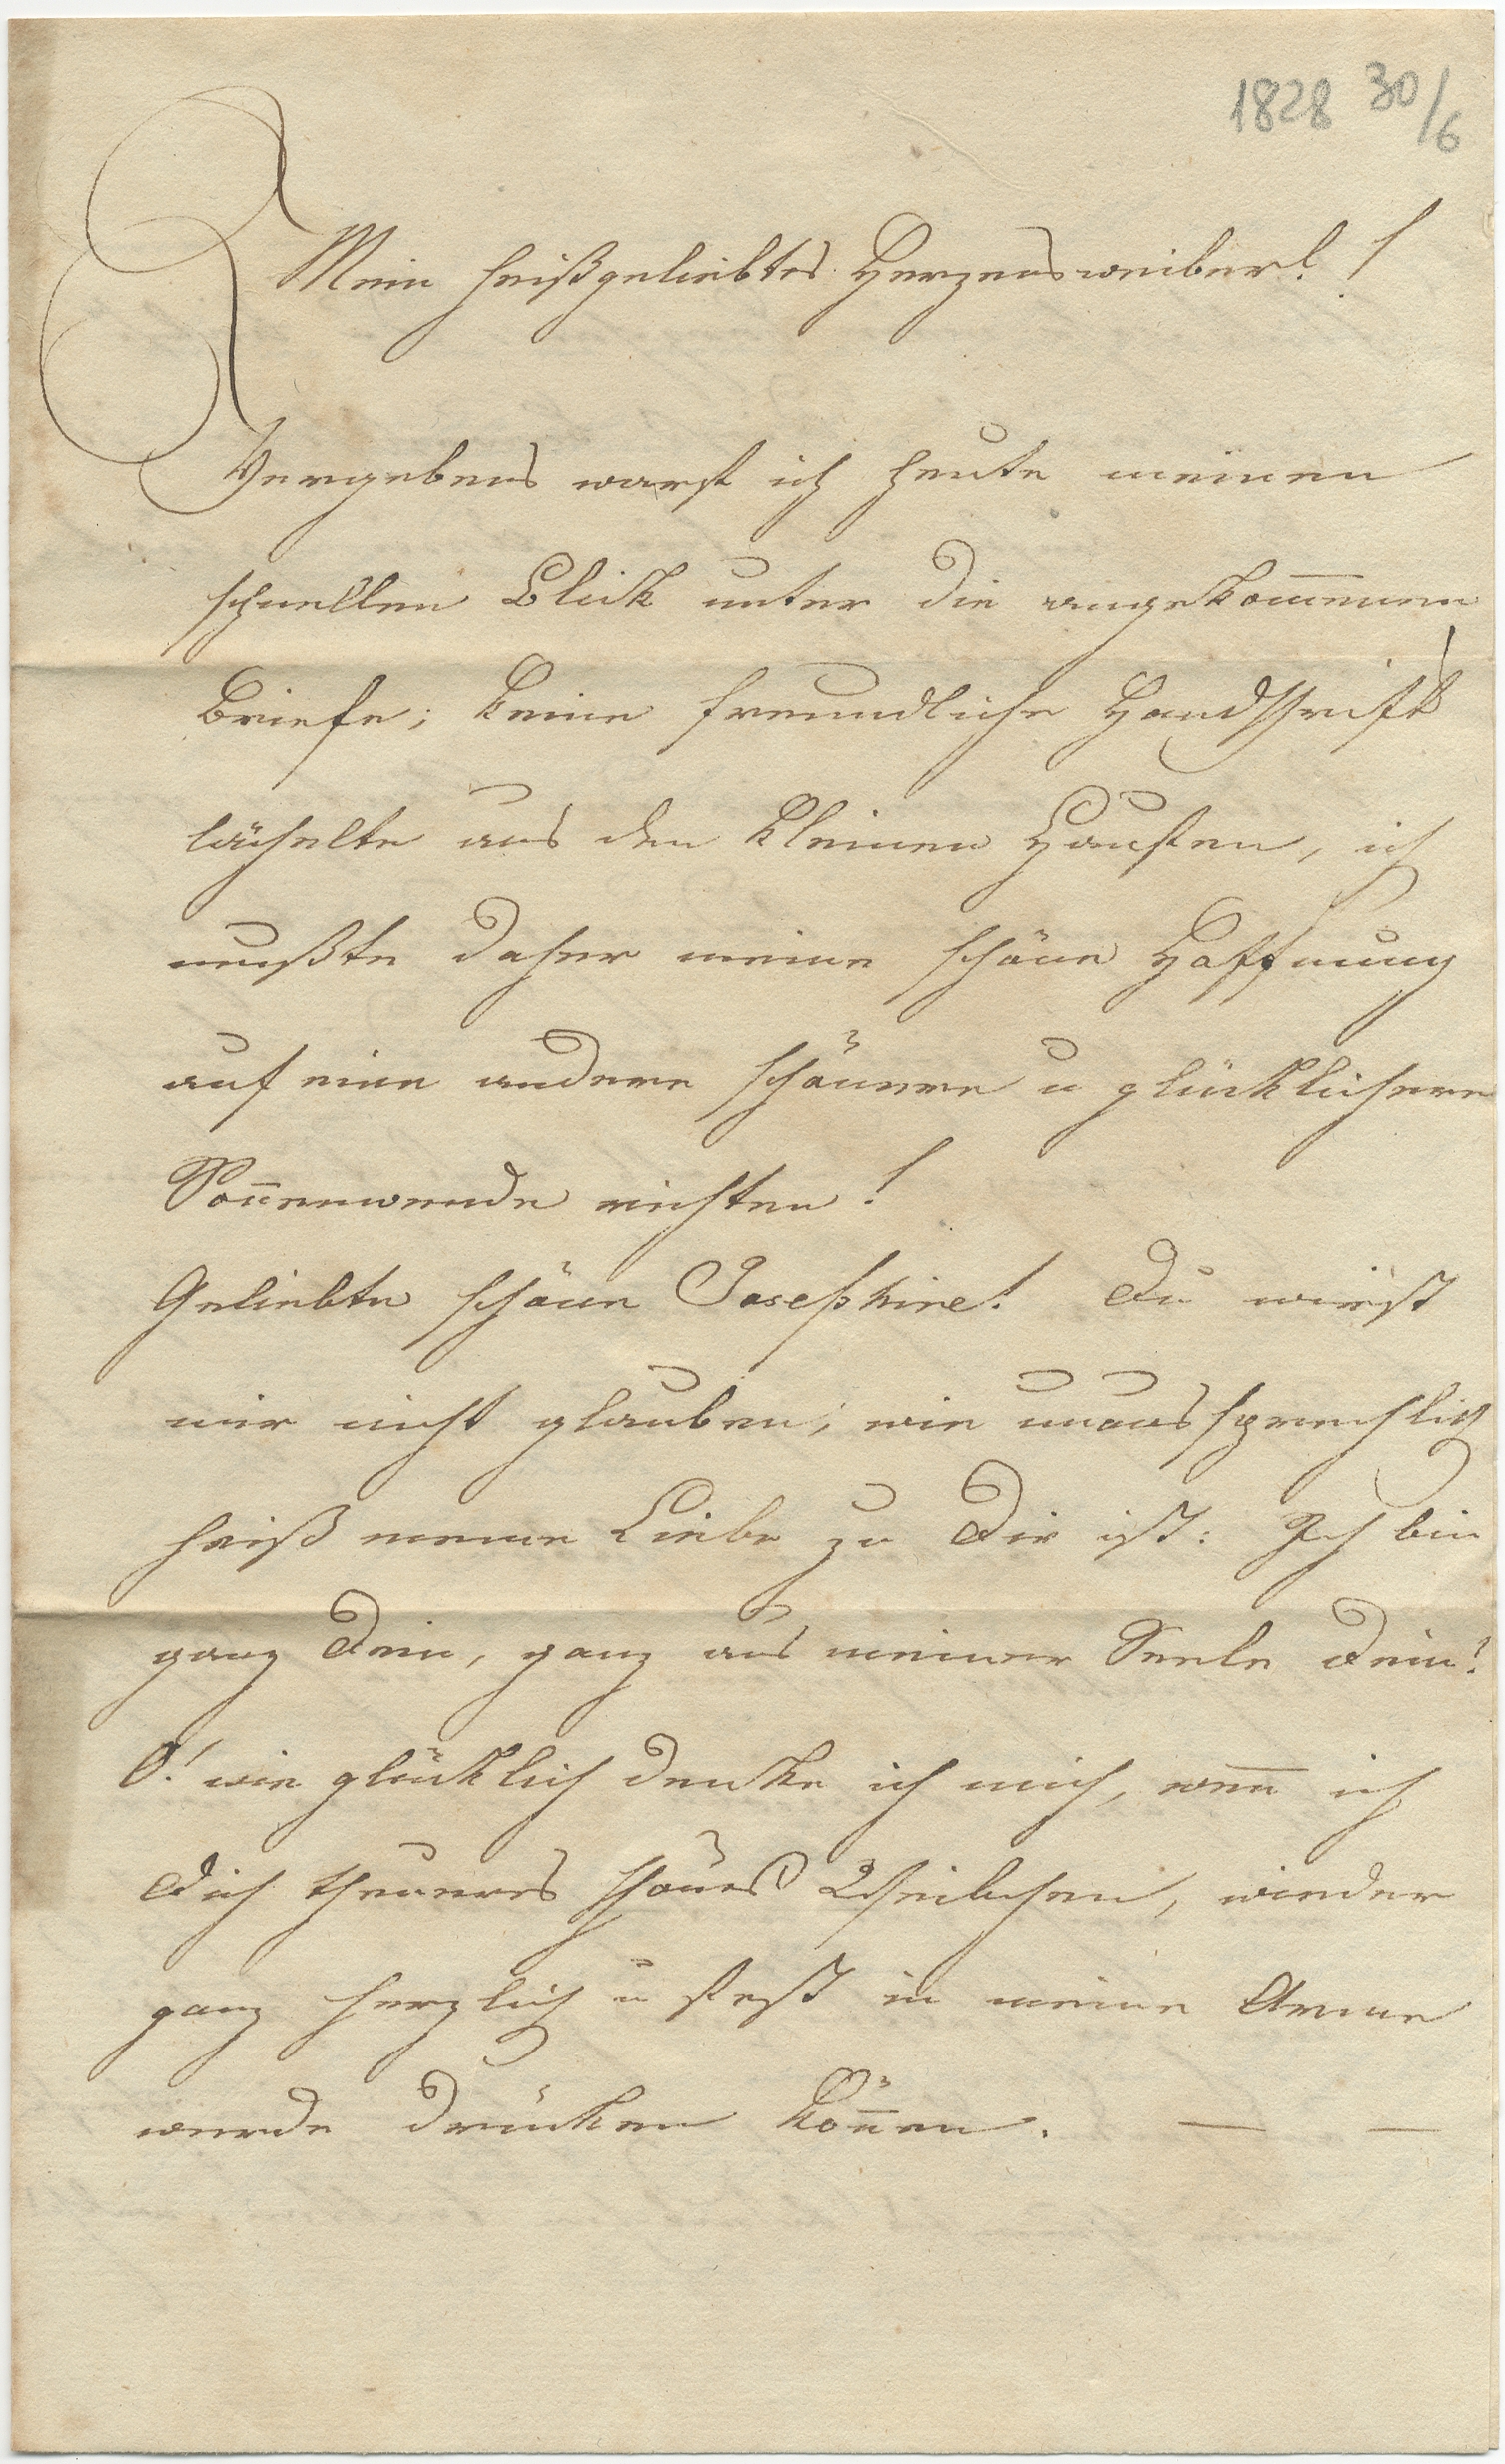 1828 30/6
Mein heißgeliebtes Herzensweiberl!
Vergebens warf ich heute meinen
schnellen Blick unter die angekom̅enen
Briefe; keine freundliche Handschrift
lächelte aus den kleinen Haufen, ich
mußte daher meine schöne Hoffnung
auf eine andere schönere u glücklichere
Son̅enwende richten!
Geliebte schöne Josephine! Du wirst
mir nicht glauben, wie unaussprechlich
heiß meine Liebe zu Dir ist: Ich bin
ganz Dein, ganz aus meiner Seele Dein!
O! wie glücklich denke ich mich, wen̅ ich
Dich theueres schönes Weibchen, wieder
ganz herzlich u fest in meine Arme
werde drücken kön̅en. — —